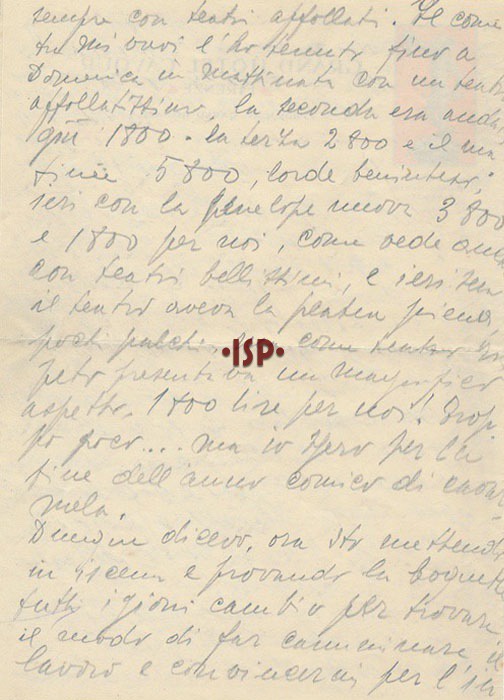 sempre con teatri affollati. Il come
tu mi vuoi l'ho tenuto fino a
Domenica in mattinata con un teatro
affollatissimo, la seconda era andata
giù 1800. la terza 2800 e il ma
tinée 5800, lorde beninteso,
ieri con la Penelope nuova 3800
e 1800 per noi, come vede
con teatri bellissimi, e ieri sera
il teatro aveva la platea piena
pochi palchi, come teatro
peto presentava un magnifico
aspetto. 1800 lire per noi! Trop
po poco... ma io spero per la
fine dell'anno comico di
mela.
Dunque dicevo, ora sto mettendo
in iscena e provando la
tutti i giorni cambio per trovare
il modo di far camminare il
lavoro e convincermi per l'
·ISP·